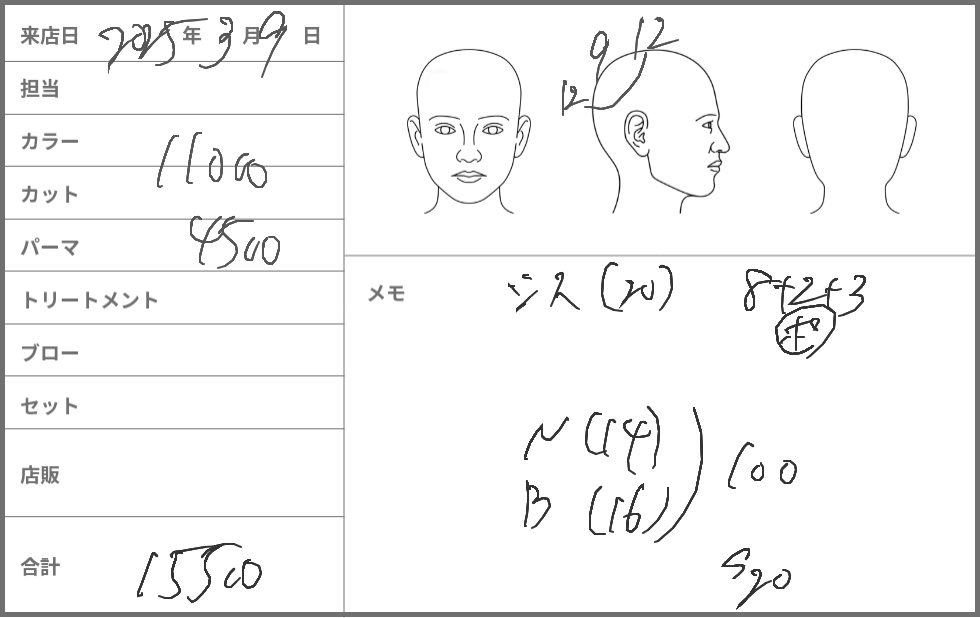 来店日 2025年3月9日
担当
カラー
11000
カット
パーマ 4500
トリートメント
ブロー
セット
店販
合計 15500
9 12
12
メモ シス(20) 8+2+3
N(14)
B(16)) 100
S20